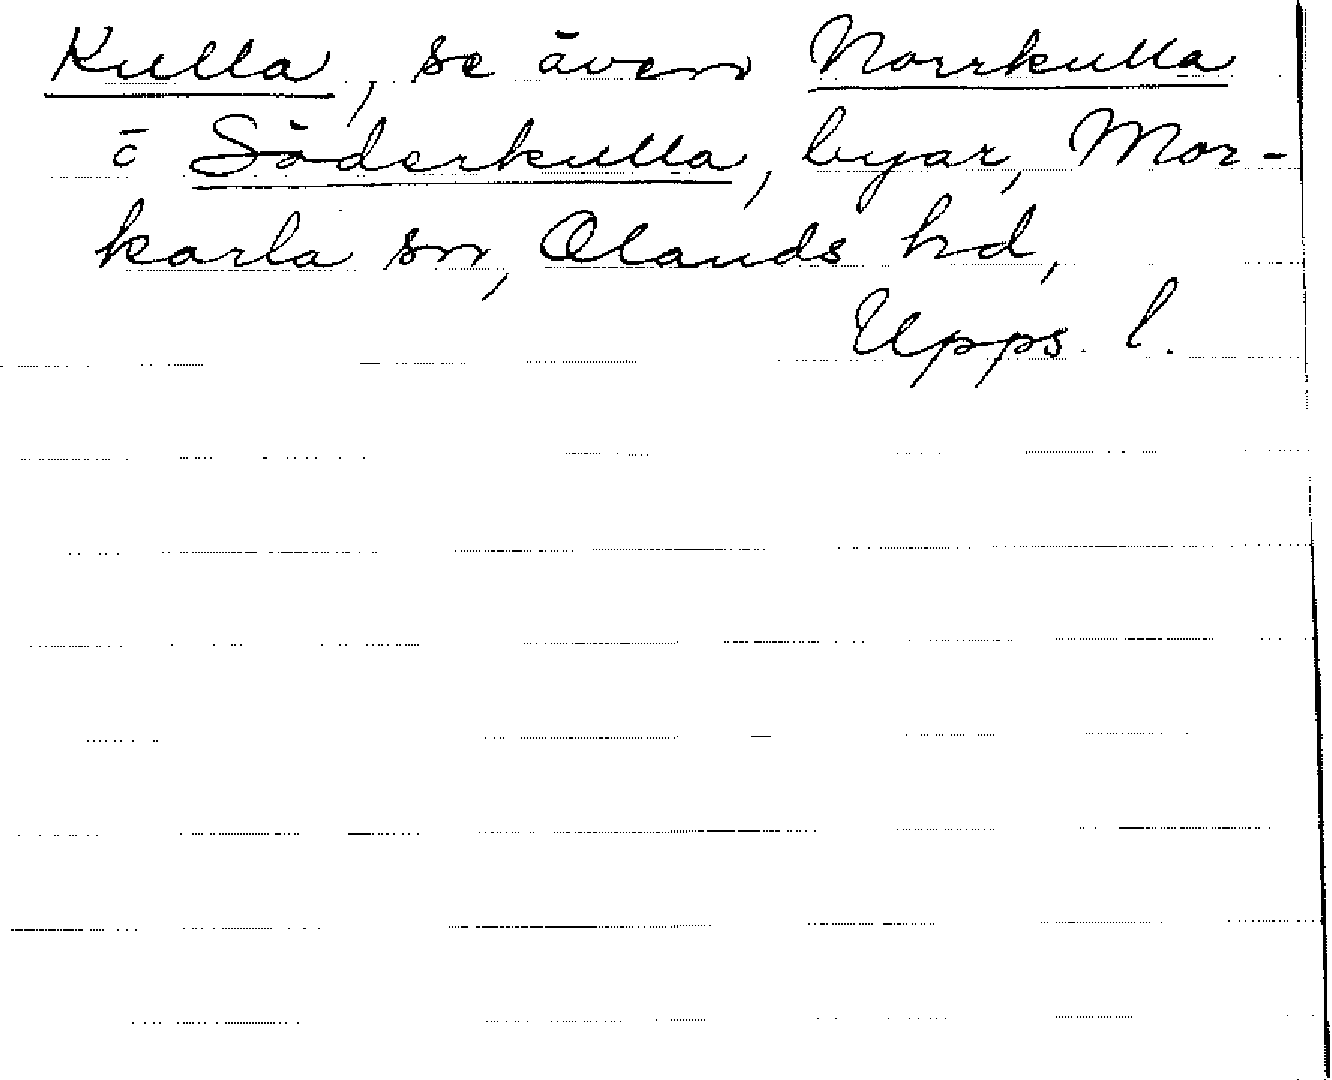 Kulla, se även Norrkulla
o Söderkulla, byar, Mor-
karla sn, Olands hd,
Upps. l.